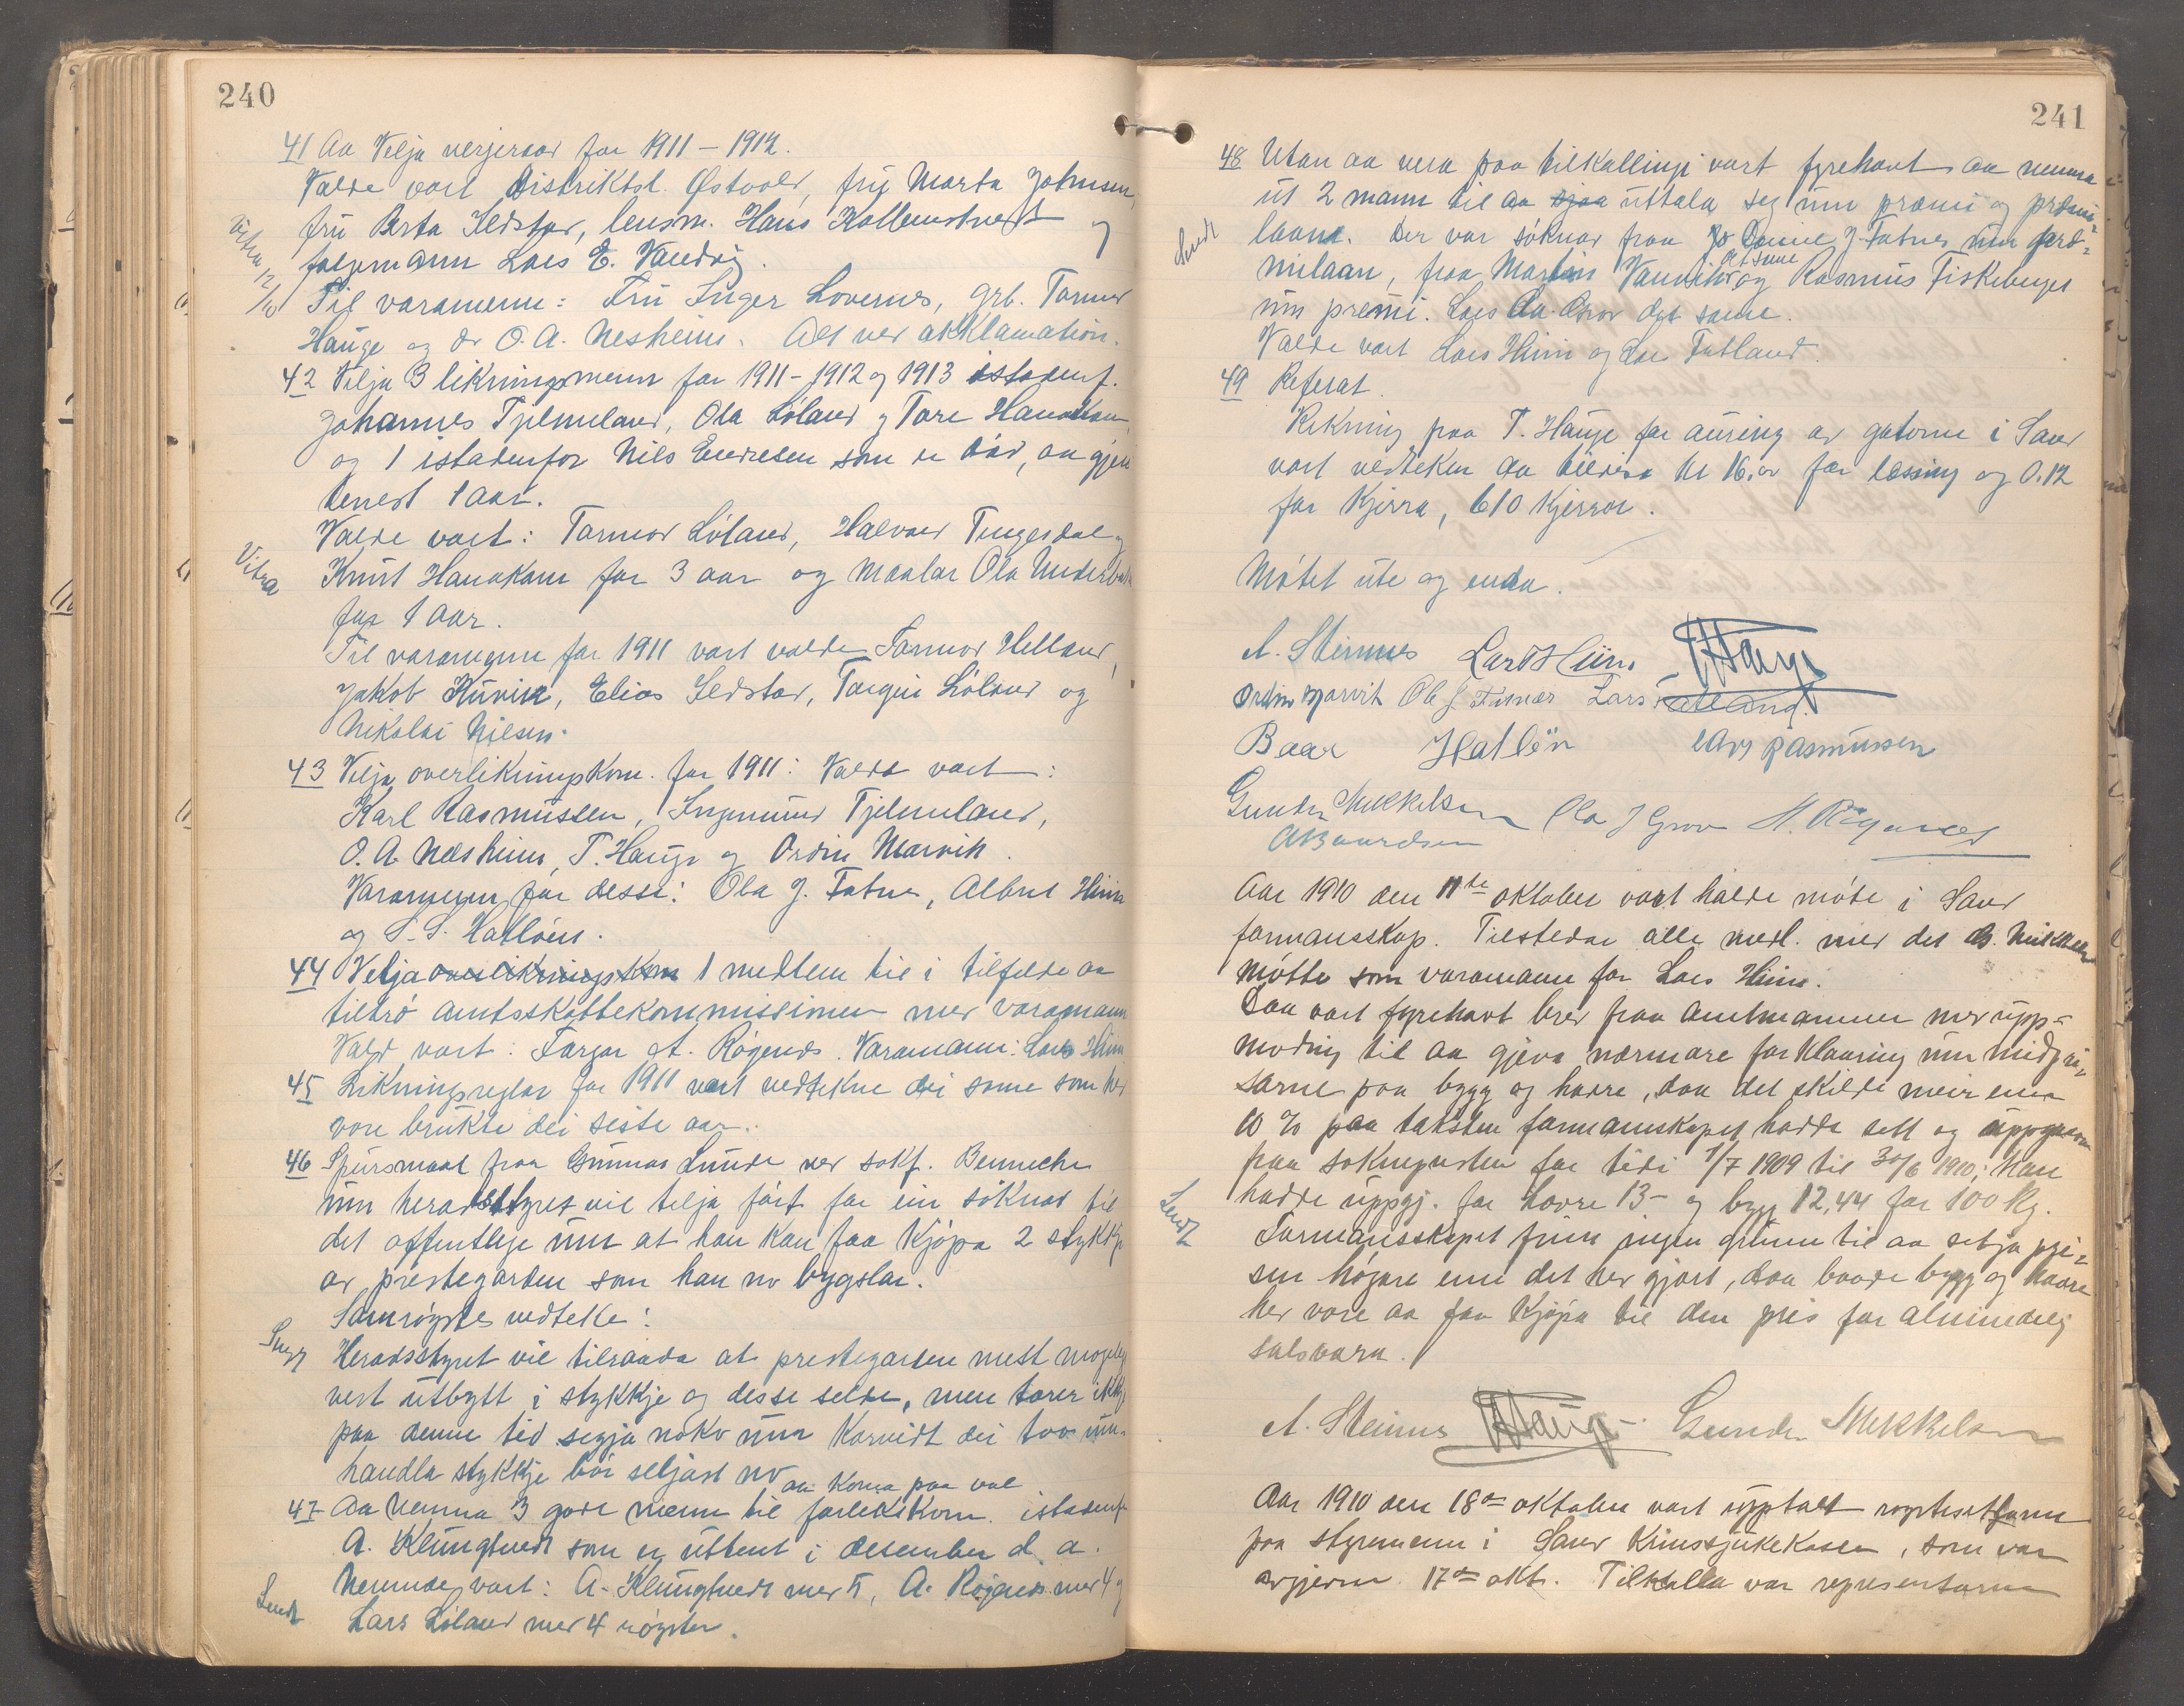 240
41 Aa Velja verjeraad for 1911 – 1912.
Valde vart Distriktsl. Østvold, fru Marta Johnsen,
fru Berta Seldstad, lensm. Hans Kallemstvedt og
Lars E. Vandvig.
Vitra 12/10
Til varamenn: Fru Inger Lovernes, grb. Tormod
Hauge og dr O. A. Nesheim. Alt ved akklamation.
42 Velja 3 likningsmenn for 1911 – 1912 og 1913 istadenf.
Johannes Tjelmeland, Ola Løland og Tore Hanakam
og 1 istadenfor Nils Endresen som er død, aa gjera
tenest 1 aar.
Valde vart: Tormod Løland, Halvard Tengesdal og
Vitra
Knut Hanakam for 3 aar og maalar Ola Underbakke
for 1 aar.
Til varamenn for 1911 vart valde Tormod Helland,
Jakob Huvik, Elias Seldstad, Torgeir Løland og
Nikolai Nilsen.
43 Velja overlikningskom. for 1911: Valde vart:
Karl Rasmussen, Ingemund Tjelmeland,
O. A. Nesheim, T. Hauge og Ordin Marvik.
Varamenn for desse: Ola J. Fatnes, Albert Hiim
og S. S. Hatløen.
44 Velja overlikningskom 1 medlem til i tilfelde aa
tiltrø amtsskattekommissionen med varamann
Vald vart: Torger A. Røgenes. Varamann: Lars Hiim
45 Likningsreglar for 1911 vart vedtekne dei same som her
vore brukte dei siste aar.
46 Spursmaal fraa Gunnar Lunde ved sokf. Bennechen
um heradsstyret vil telja før for ein søknad til
det offentlege um at han kan faa kjøpa 2 stykkje
av prestegarden som han no bygslar.
Samrøystes vedteke:
Heradsstyret vil tilraada at prestegarden mest mogeleg
vert utbytt i stykkje og desse selde, men torer ikkje
paa denne tid segja noko um korvidt dei tvo um-
handla stykkje bør seljast no
aa koma paa val
47 Aa nemna 3 gode menn til forlikskom. istadenf.
A. Klungtvedt som er uttent i desember d. a.
Sendt
Nemnde vart: A. Klungtvedt med 5, A. Røgenes med 4 og
Lars Løland med 4 røyster.
241
48 Utan aa vera paa tilkallingi vart fyrehavt aa nemna
ut 2 mann til aa sjaa uttala seg um premi og premi-
Sendt
laane. Der var søknad fraa Daniel J. Fatnes um jord-
det same
milaan, fraa Martin Vanvik og Rasmus Fiskeberget
um premi. Lars Aa. Grov det same.
Valde vart Lars Hiim og Lars Fatland.
49 Referat.
Rekning paa T. Hauge for auring av gatorne i Saud
vart vedteken aa tildeila kr 16,00 for læssing og 0.12
for kjerra, 610 kjerror.
Møtet ute og enda.
A. Steinnes Lars Hiim T Hauge
Ordin Marvik Ola J. Fatnes Lars Fatland.
Baar Hatløen Lars Rasmussen
Gunder Mikkelsen Ola J Grov A. Røgenes
A Baardsen
Aar 1910 den 11te oktober vart halde møte i Saud
formansskap. Tilstedar alle medl. med det G. Mikkelsen
møtte som varamann for Lars Hiim.
Daa vart fyrehavt brev fraa amtmannen med upp-
moding til aa gjeva nærmare forklaaring um midpri-
sarne paa bygg og havre, daa det skilde meir enn
10 % paa taksten formannskapet hadde sett og uppgaava
fraa soknepresten for tidi 1/7 1909 til 30/6 1910; han
hadde uppgj. for havre 13 – og bygg 12,44 for 100 kg.
Sendt
Formansskapet finn ingen grunn til aa setja pri-
sen høgare enn det her gjort, daa baade bygg og havre
her vore aa faa kjøpa til den pris for almindeleg
salsvara.
A. Steinnes T Hauge Gunder Mikkelsen
Aar 1910 den 18de oktober vart upptalt røystesetlarne
paa styremenn i Saud Krinssjukekasse, som var
avgjevne 17de okt. Tilkalla var representarne